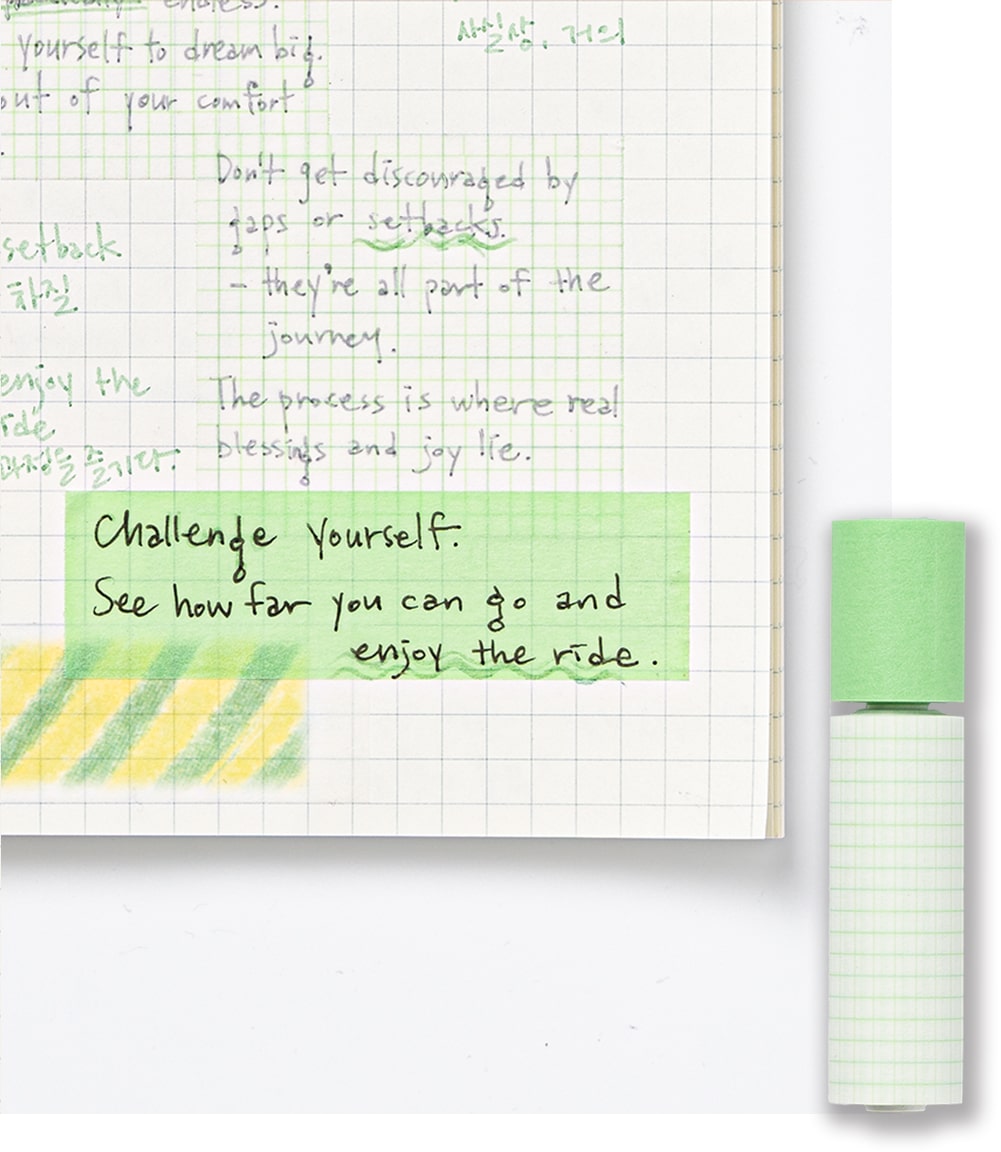 endless.
yourself to dream big.
out of your comfort
사실상, 거의
Don't get discouraged by
gaps or setbacks.
- they're all part of the
journey.
setback
차질
enjoy the
ride
과정을 즐기다.
The process is where real
blessings and joy lie.
Challenge yourself.
See how far you can go and
enjoy the ride.